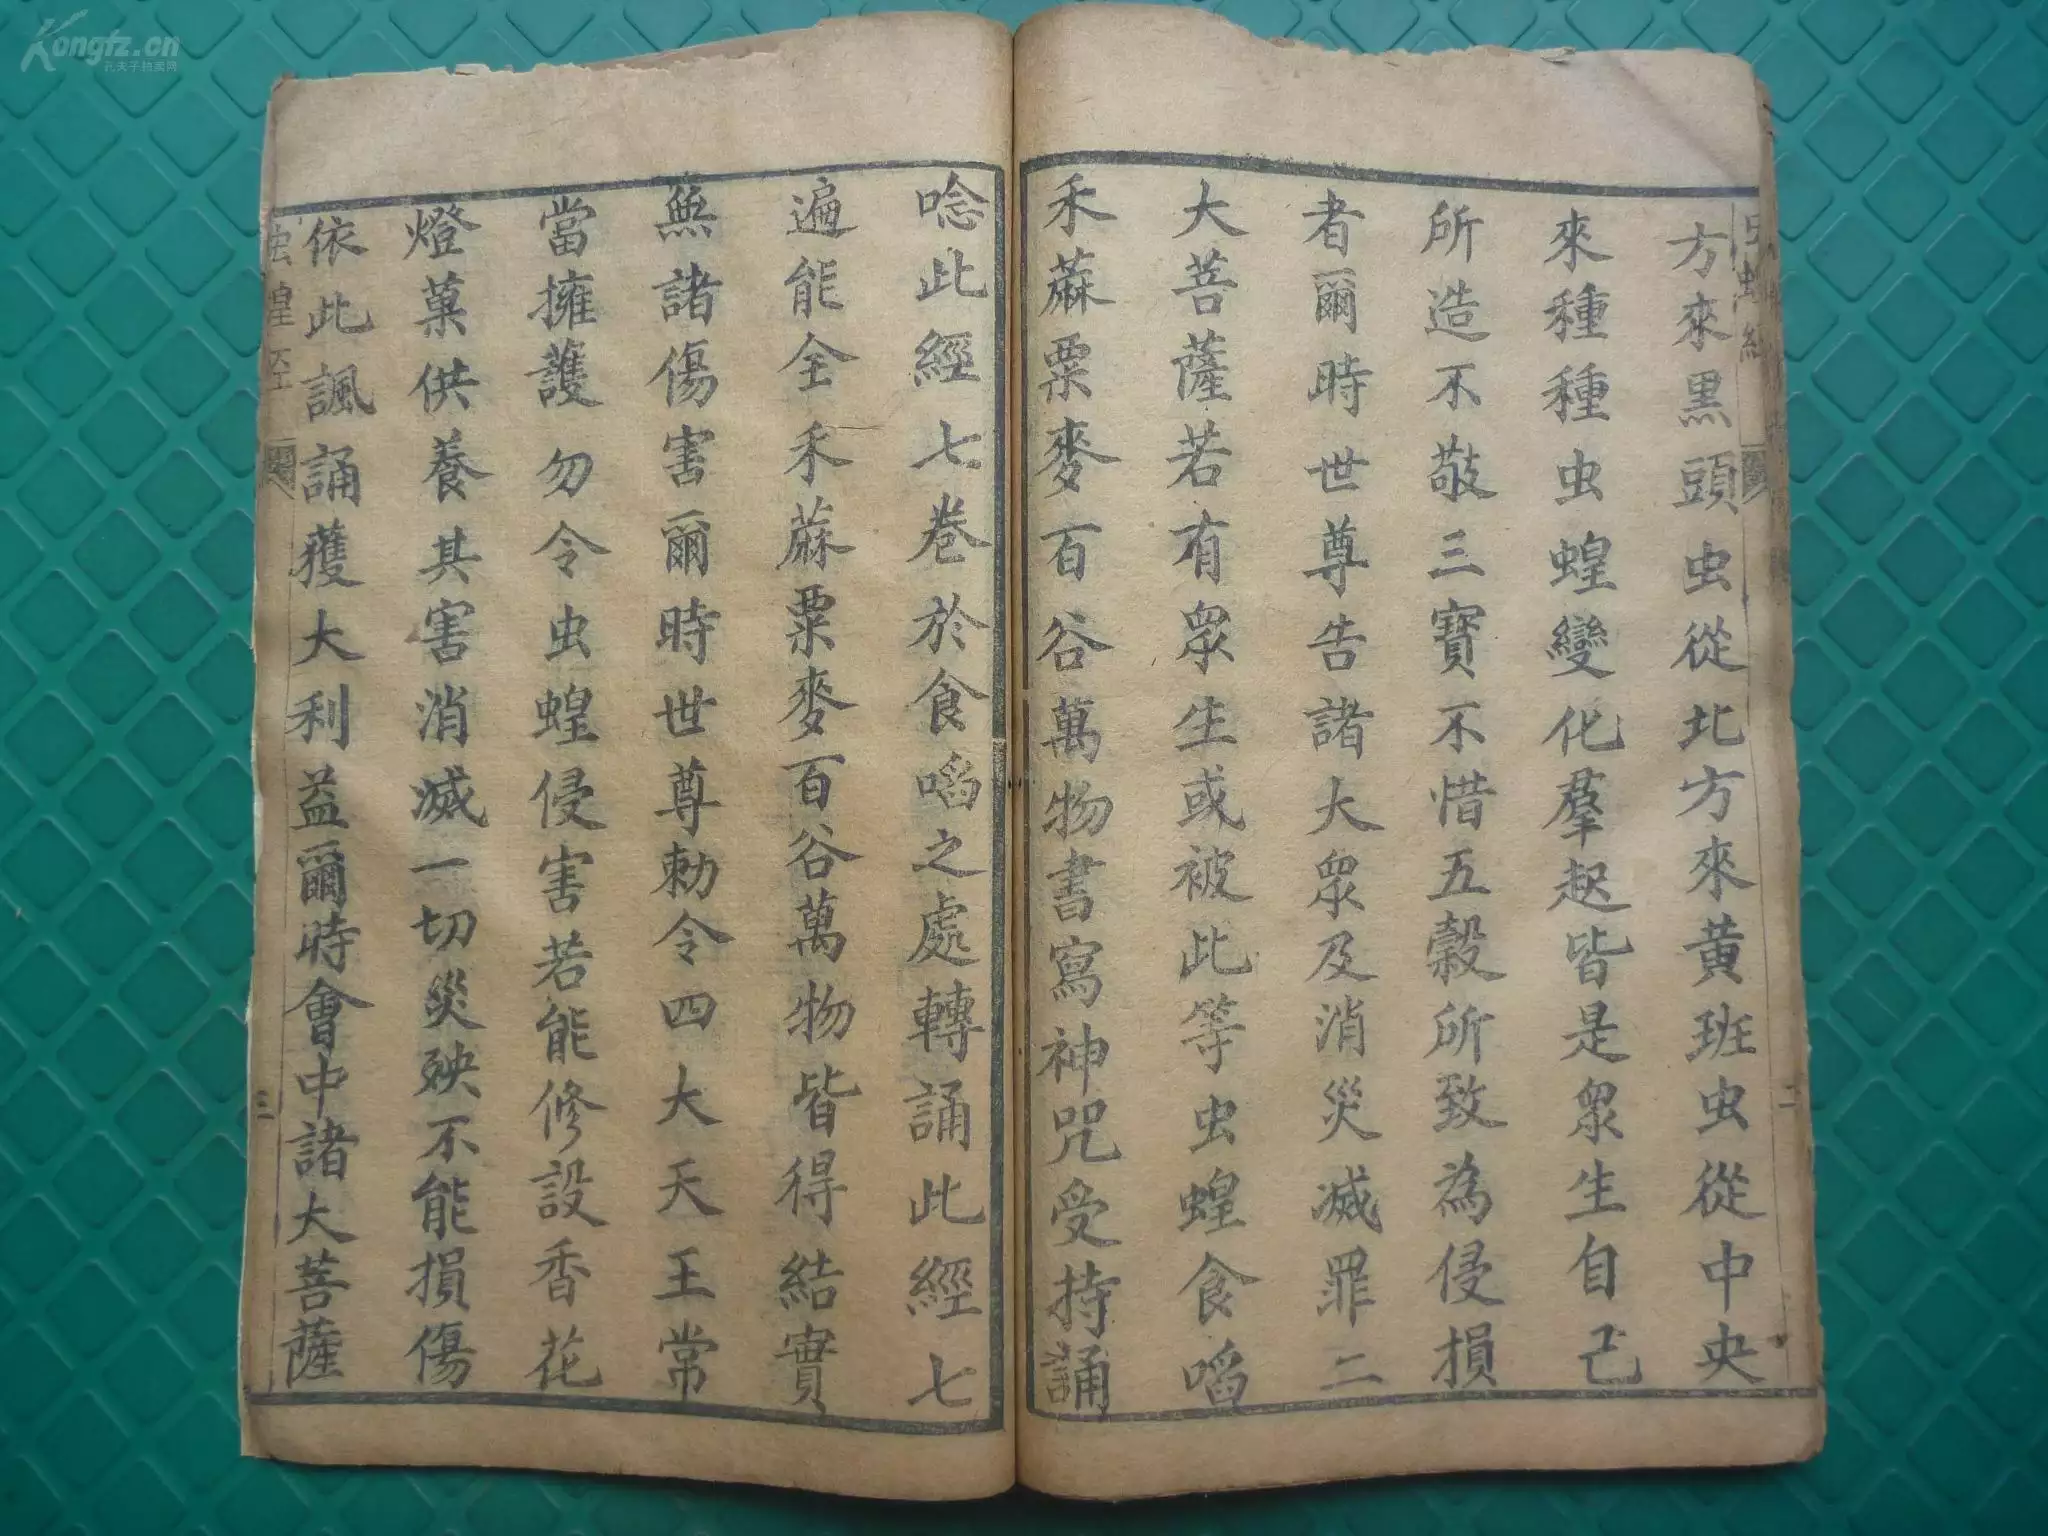 方來黑頭虫從北方來黃班虫從中央
來種種虫蝗變化羣起皆是衆生自己
所造不敬三寶不惜五穀所致為侵損
者爾時世尊告諸大衆及消災滅罪二
大菩薩若有衆生或被此等虫蝗食啗
禾蔴粟麥百谷萬物書寫神咒受持誦
唸此經七卷於食啗之處轉誦此經七
遍能全禾蔴粟麥百谷萬物皆得結實
無諸傷害爾時世尊勅令四大天王常
當擁護勿令虫蝗侵害若能修設香花
燈菓供養其害消滅一切災殃不能損傷
依此諷誦獲大利益爾時會中諸大菩薩
虫蝗经
三
二
Kongfz.cn
孔夫子拍卖网